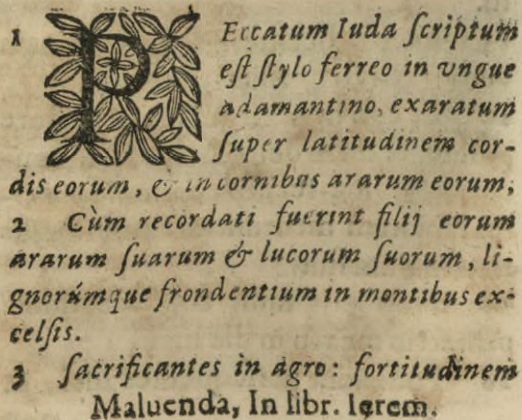 1 PEccatum Iuda ſcriptum
eſt ſtylo ferreo in vngue
adamantino, exaratum
ſuper latitudinem cor-
dis eorum, & in cornibus ararum eorum,
2 Cùm recordati fuerint filij eorum
ararum ſuarum & lucorum ſuorum, li-
gnorúmque frondentium in montibus ex-
celſis.
3 ſacrificantes in agro: fortitudinem
Maluenda, In libr. Ierem.